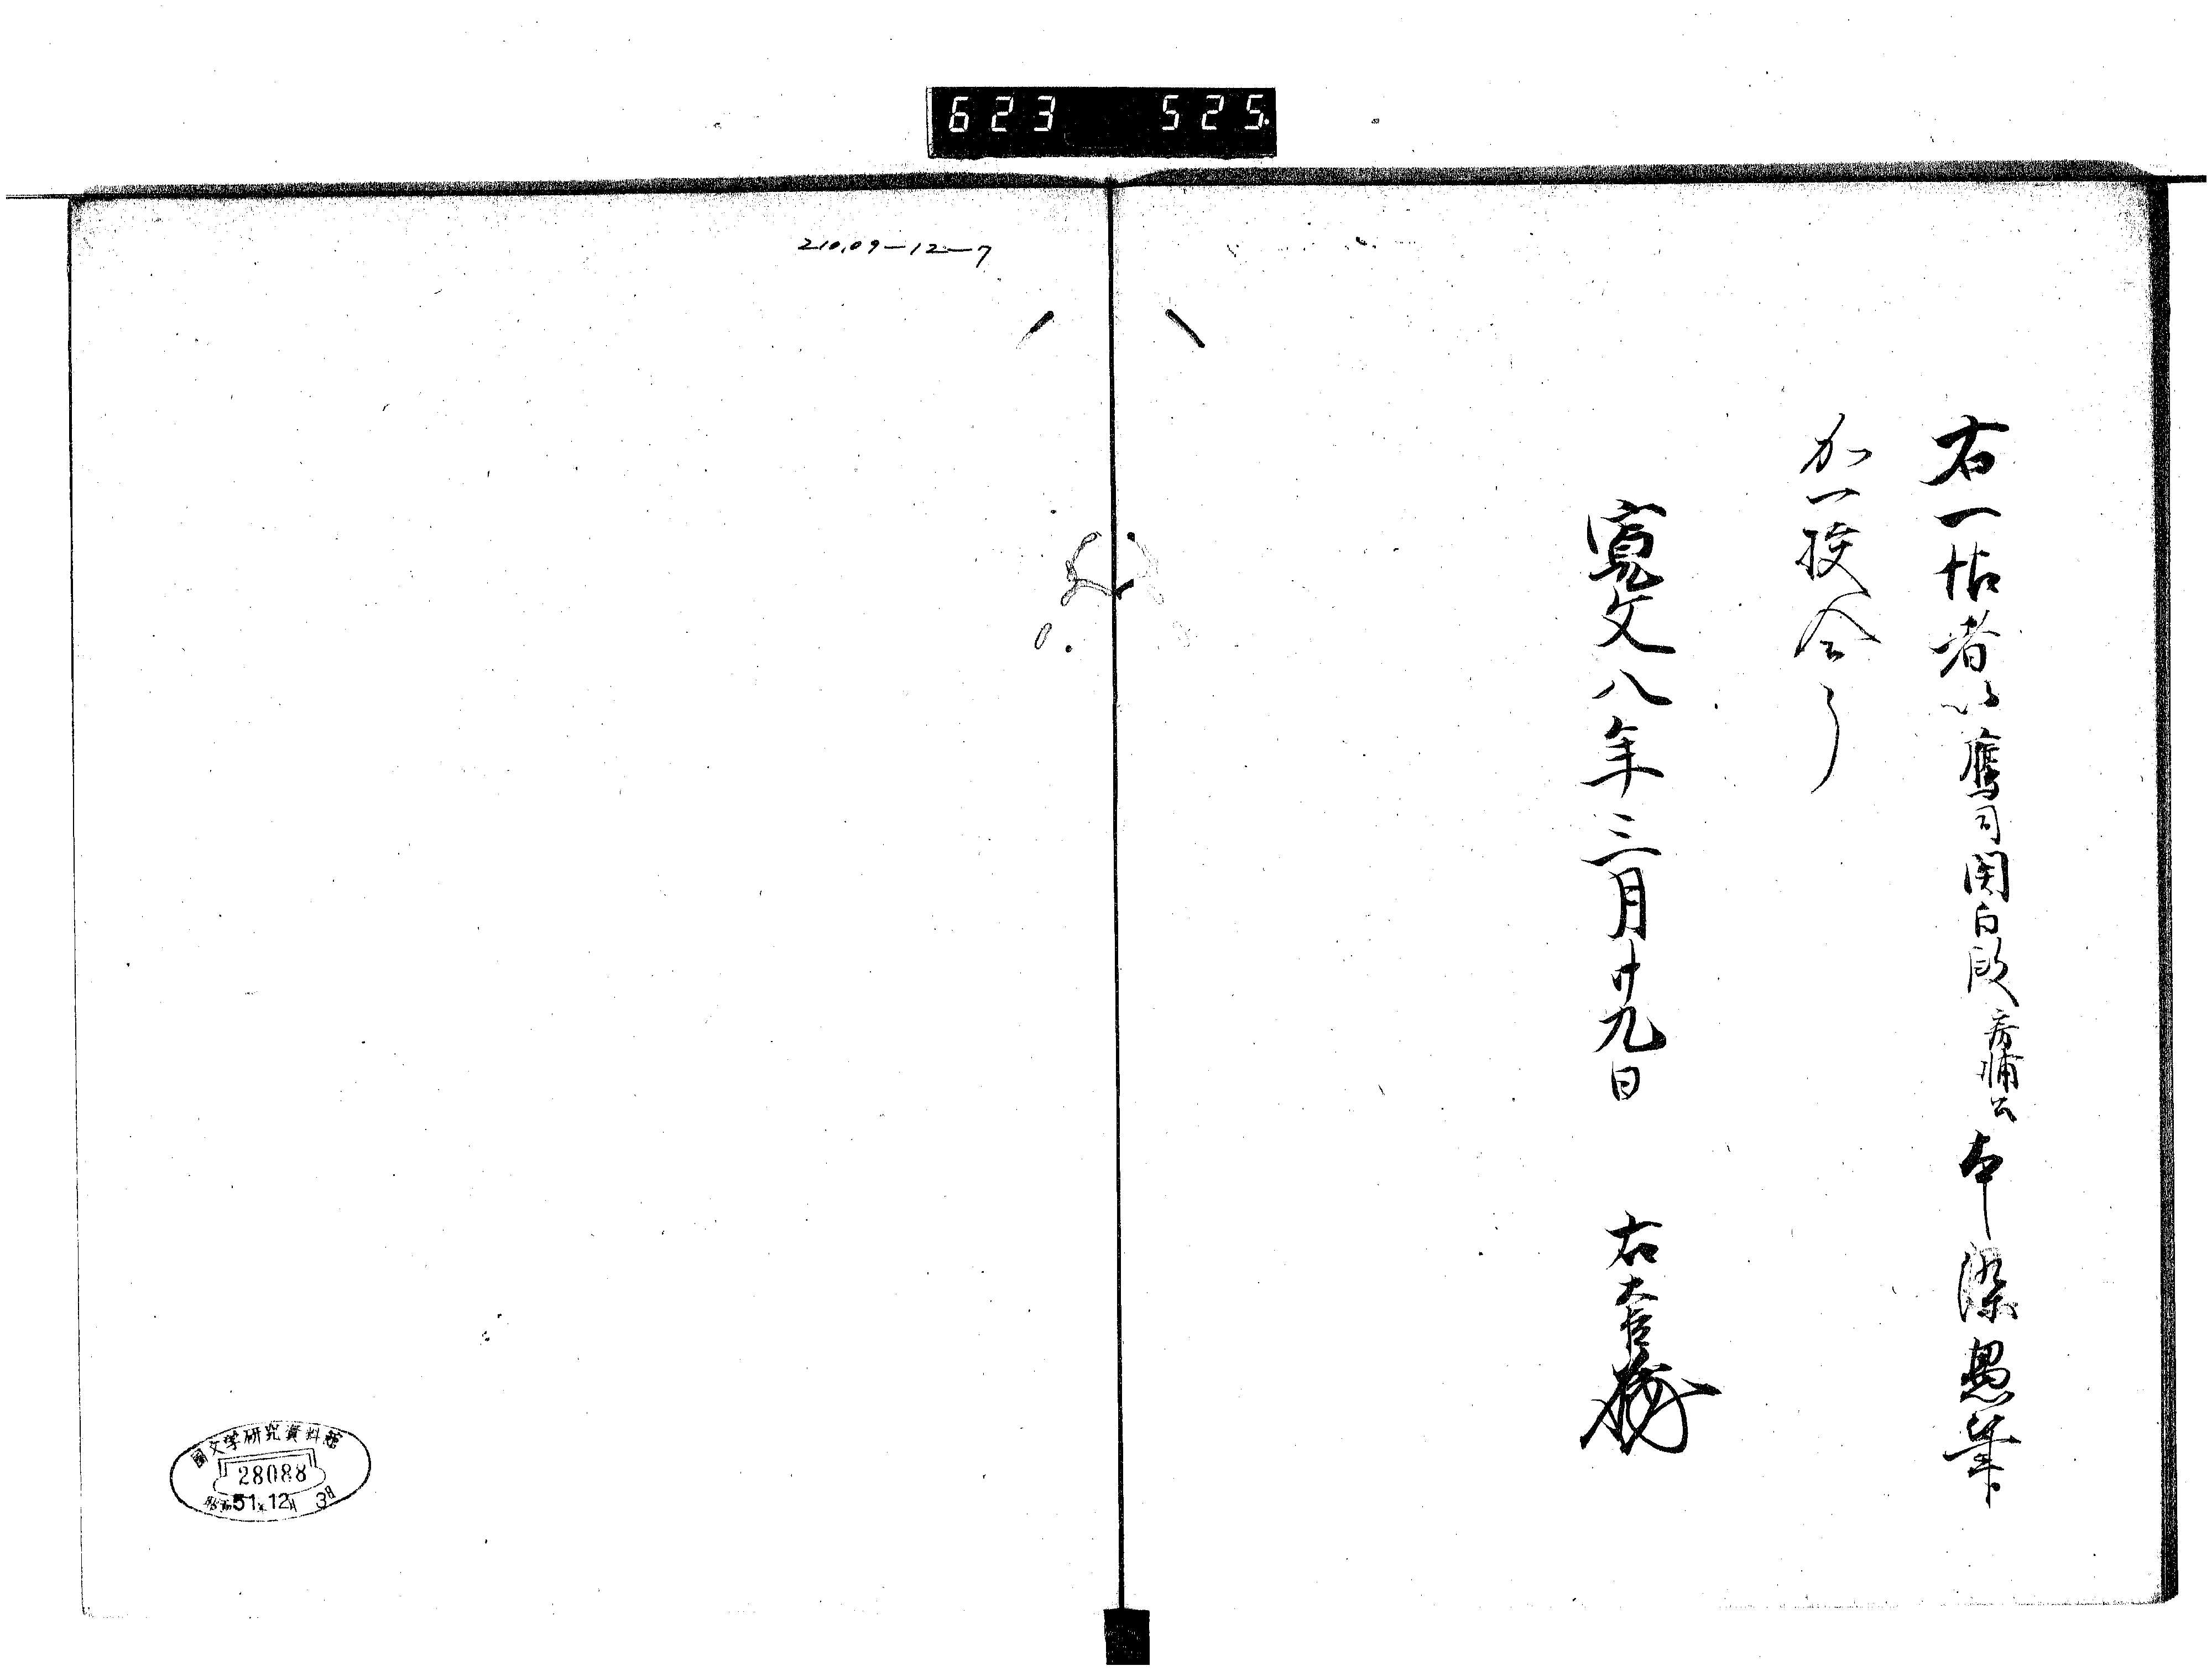 623 525
右一帖者以鷹司関白殿房輔公本染愚筆
加一校合了
寛文八年三月廿九日 右大臣
210.09-12-7
国文学研究資料館
28088
昭和51年12月3日